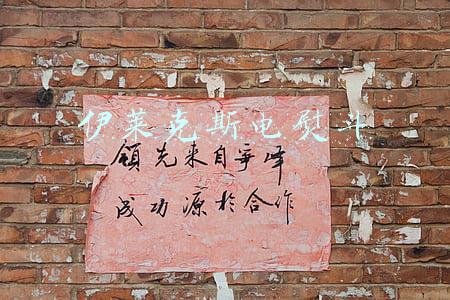 伊莱克斯电熨斗
领先来自争峰
成功源於合作